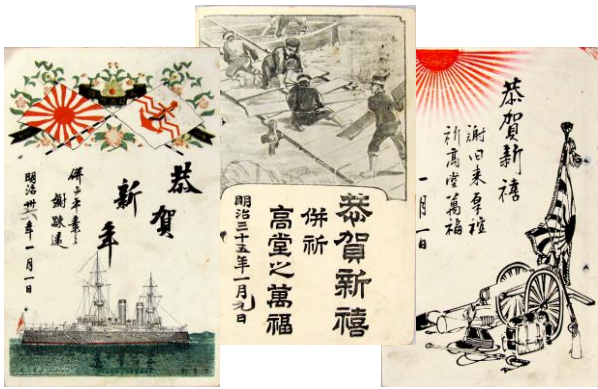 恭賀
新年
謝踈遠
明治卅六年一月一日
恭賀新禧
併祈
高堂之萬福
明治三十五年一月元日
恭賀新禧
謝旧来厚誼
祈高堂萬福
一月一日